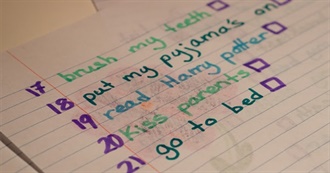 17 brush my teeth
18 put my pyjama's on
19 read Harry potter
20 Kiss parents
21 go to bed